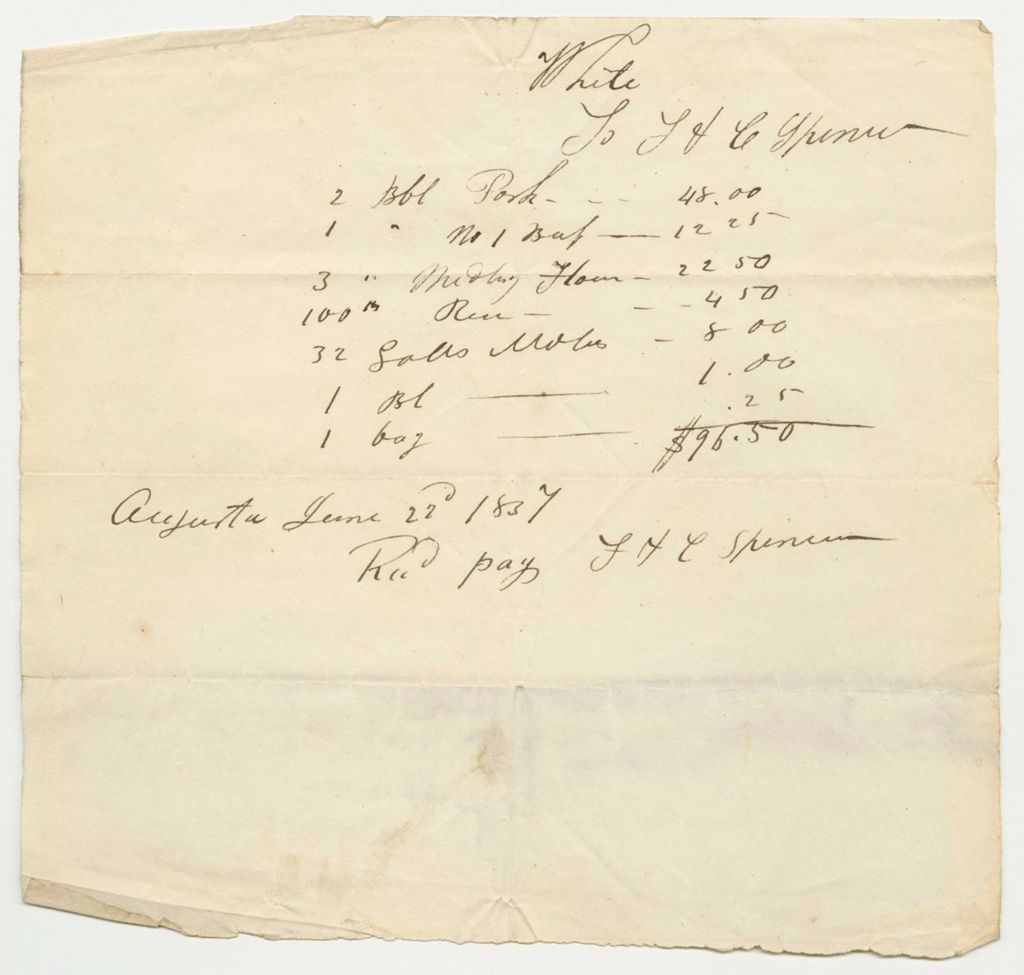 White
To F & C Spencer
2 Bbl Pork - - - 48.00
1 " No 1 Beef — 12 25
3 " Midling Flour - 22 50
100 lb Rice - - - 4 50
32 Galls Molas - 8 00
1 Bl — 1.00
1 bag — .25
$96.50
Augusta June 22d 1837
Recd pay F & C Spencer